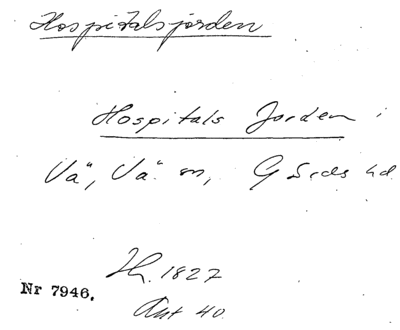 Hospitalsjorden
Hospitals Jorden i
Vä, Vä sn, Gärds hd
Nr 7946.
1827
Ant 40